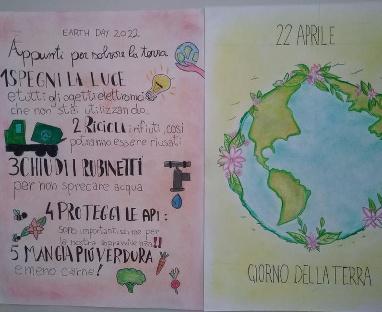 EARTH DAY 2022
Appunti per salvare la terra
1 SPEGNI LA LUCE
e tutti gli oggetti elettronici
che non stai utilizzando.
2 RICICLA i rifiuti, così
potranno essere riusati
3 CHIUDI I RUBINETTI
per non sprecare acqua
4 PROTEGGI LE API:
sono importantissime per
la nostra sopravvivenza!!
5 MANGIA PIÙ VERDURA
e meno carne!
22 APRILE
GIORNO DELLA TERRA